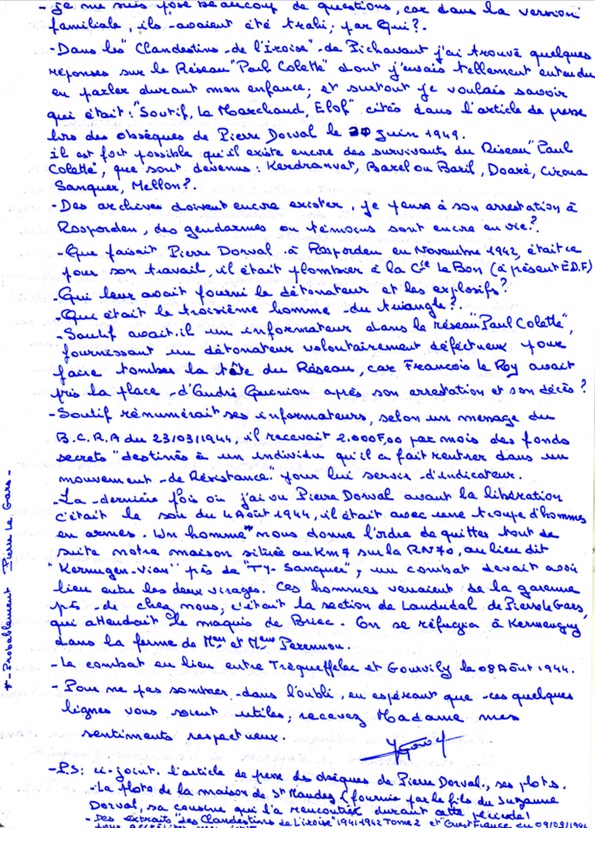 - Je me suis posé beaucoup de questions, car dans la version
familiale, ils avaient été trahi, par Qui?.
- Dans les "Clandestins de l'Iroise" de Pichavant j'ai trouvé quelques
réponses sur le Réseau "Paul Colette" dont j'avais tellement entendu
en parler durant mon enfance, et surtout je voulais savoir
qui était: "Soutif, Le Marchand, Elof" cités dans l'article de presse
lors des obsèques de Pierre Dorval le 20 juin 1949.
il est fort possible qu'il existe encore des survivants du Réseau "Paul
Colette", que sont devenus: Kerdranvat, Barel ou Baril, Doaré,
Sanquer, Mellon?.
- Des archives doivent encore exister, je pense à son arrestation à
Rosporden, des gendarmes ou témoins sont encore en vie?.
- Que faisait Pierre Dorval à Rosporden en Novembre 1942, était ce
pour son travail, il était plombier à la Cie Le Bon (à présent E.D.F)
- Qui leur avait fourni le détonateur et les explosifs?
- Qui était le troisième homme du triangle?.
- Soutif avait.il un informateur dans le réseau "Paul Colette",
fournissant un détonateur volontairement défectueux pour
faire tomber la tête du Réseau, car François Le Roy avait
pris la place d'André Quéniou après son arrestation et son décès?
- Soutif rémunérait ses informateurs, selon un message du
B.C.R.A du 23/03/1944, il recevait 2.000F,00 par mois des fonds
secrets "destinés à un individu qu'il a fait rentrer dans un
mouvement de Résistance" pour lui servir d'indicateur.
- La dernière fois où j'ai vu Pierre Dorval avant la libération
c'était le soir du 4 Août 1944, il était avec une troupe d'hommes
en armes. Un homme* nous donne l'ordre de quitter tout de
suite notre maison située au Km 7 sur la RN 70, au lieu dit
"Kernugen-Vian" près de "Ty-Sanquer", un combat devait avoir
lieu entre les deux virages. Ces hommes venaient de la garenne
près de chez nous, c'était la section de Landudal de Pierre Le Gars,
qui attendait le maquis de Briec. On se réfugia à Kermeugny
dans la ferme de Mr et Mme Perennou.
- Le combat eu lieu entre Tréqueffelec et Gourvily le 08 Août 1944.
- Pour ne pas sombrer dans l'oubli, en espérant que ces quelques
lignes vous soient utiles, recevez Madame mes
sentiments respectueux.
- P.S: ci-joint. l'article de presse des obsèques de Pierre Dorval., ses photos.
- La photo de la maison de St Maudez (fournie par le fils du Suzanne
Dorval, sa cousine que j'ai rencontrée durant cette période)
- Des extraits "des Clandestins de l'Iroise" 1941-1942 Tome 2 et Ouest France du 09/09/1944
* - Probablement Pierre Le Gars -